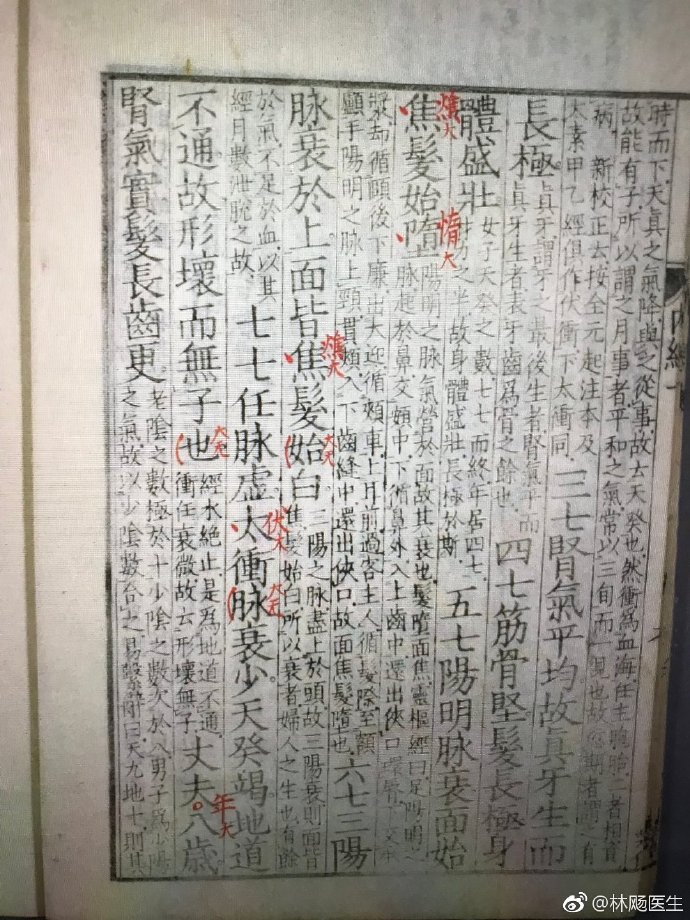 時而下天真之氣降與之從事故云天癸也然衝為血海任主胞胎二者相資
故能有子所以謂之月事者平和之氣常以三旬而一見也故愆期者謂之有
病 新校正云按全元起注本及
太素甲乙經俱作伏衝下太衝同
三七腎氣平均故真牙生而
長極
真牙謂牙之最後生者腎氣平而
真牙生者表牙齒為骨之餘也
四七筋骨堅髮長極身
體盛壯
女子天癸之數七七而終年居四七
材力之半故身體盛壯長極於斯
五七陽明脉衰面始
燋大
惰大
焦髮始墮
陽明之脉氣營於面故其衰也髮墮面焦靈樞經曰足陽明之
脉起於鼻交頞中下循鼻外入上齒中還出俠口環脣下交承
漿却循頤後下廉出大迎循頰車上耳前過客主人循髮際至額
顱手陽明之脉上頸貫頰入下齒縫中還出俠口故面焦髮墮也
六七三陽
燋大
脉衰於上面皆焦髮始白
三陽之脉盡上於頭故三陽衰則面皆
焦髮始白所以衰者婦人之生也有餘
於氣不足於血以其
經月數泄脫之故
伏大
七七任脉虛太衝脉衰少天癸竭地道
不通故形壞而無子也
經水絕止是為地道不通
衝任衰微故云形壞無子
年大
丈夫八歲
腎氣實髮長齒更
老陰之數極於十少陰之數次於八男子為少陽
之氣故以少陰數合之易繫辭曰天九地十則其
@林飏医生